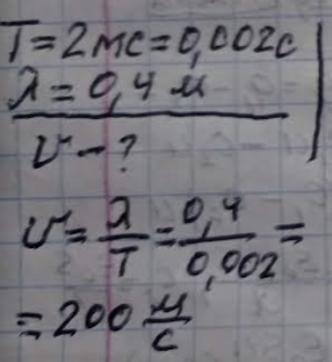 T=2мс=0,002с
λ=0,4м
υ-?
υ=λ/T=0,4/0,002=
=200 м/с